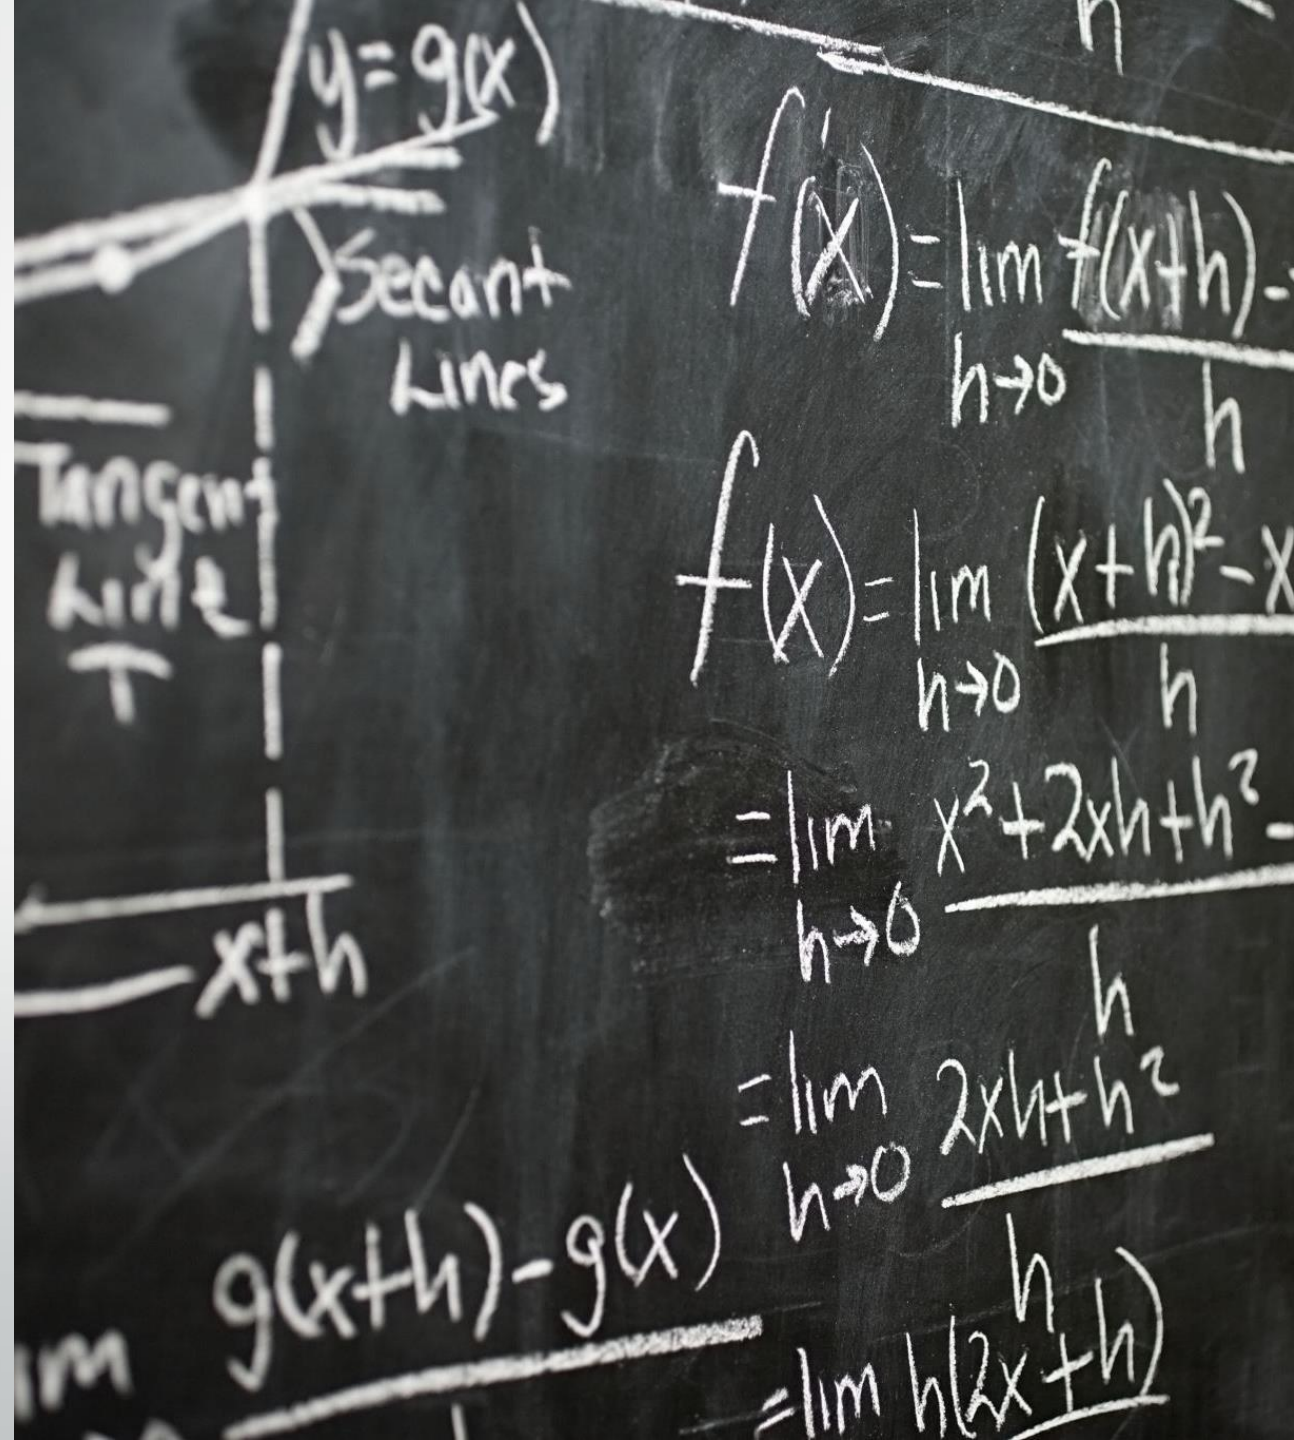 y = g(x)
Secant
Lines
Tangent
Line
T
x+h
g(x+h) - g(x)
h
f'(x) = lim f(x+h) -
h→0 h
f(x) = lim (x+h)² - x
h→0 h
= lim x² + 2xh + h² -
h→0 h
= lim 2xh + h²
h→0 h
= lim h(2x + h)